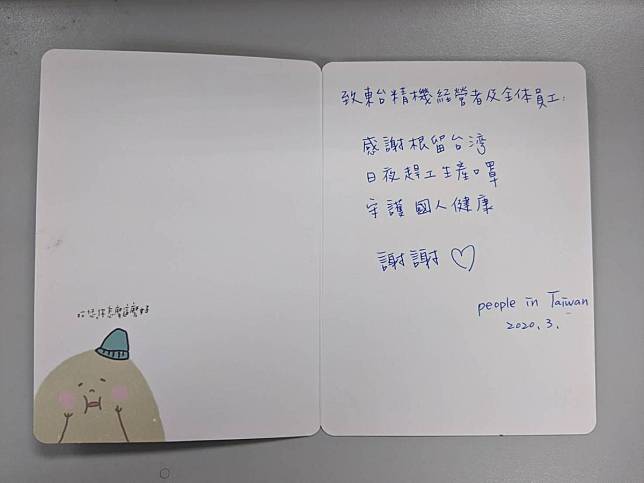 你怎麼這麼好
致東台精機經營者及全体員工:
感謝根留台湾
日夜趕工生產口罩
守護國人健康
謝謝♡
people in Taiwan
2020.3.